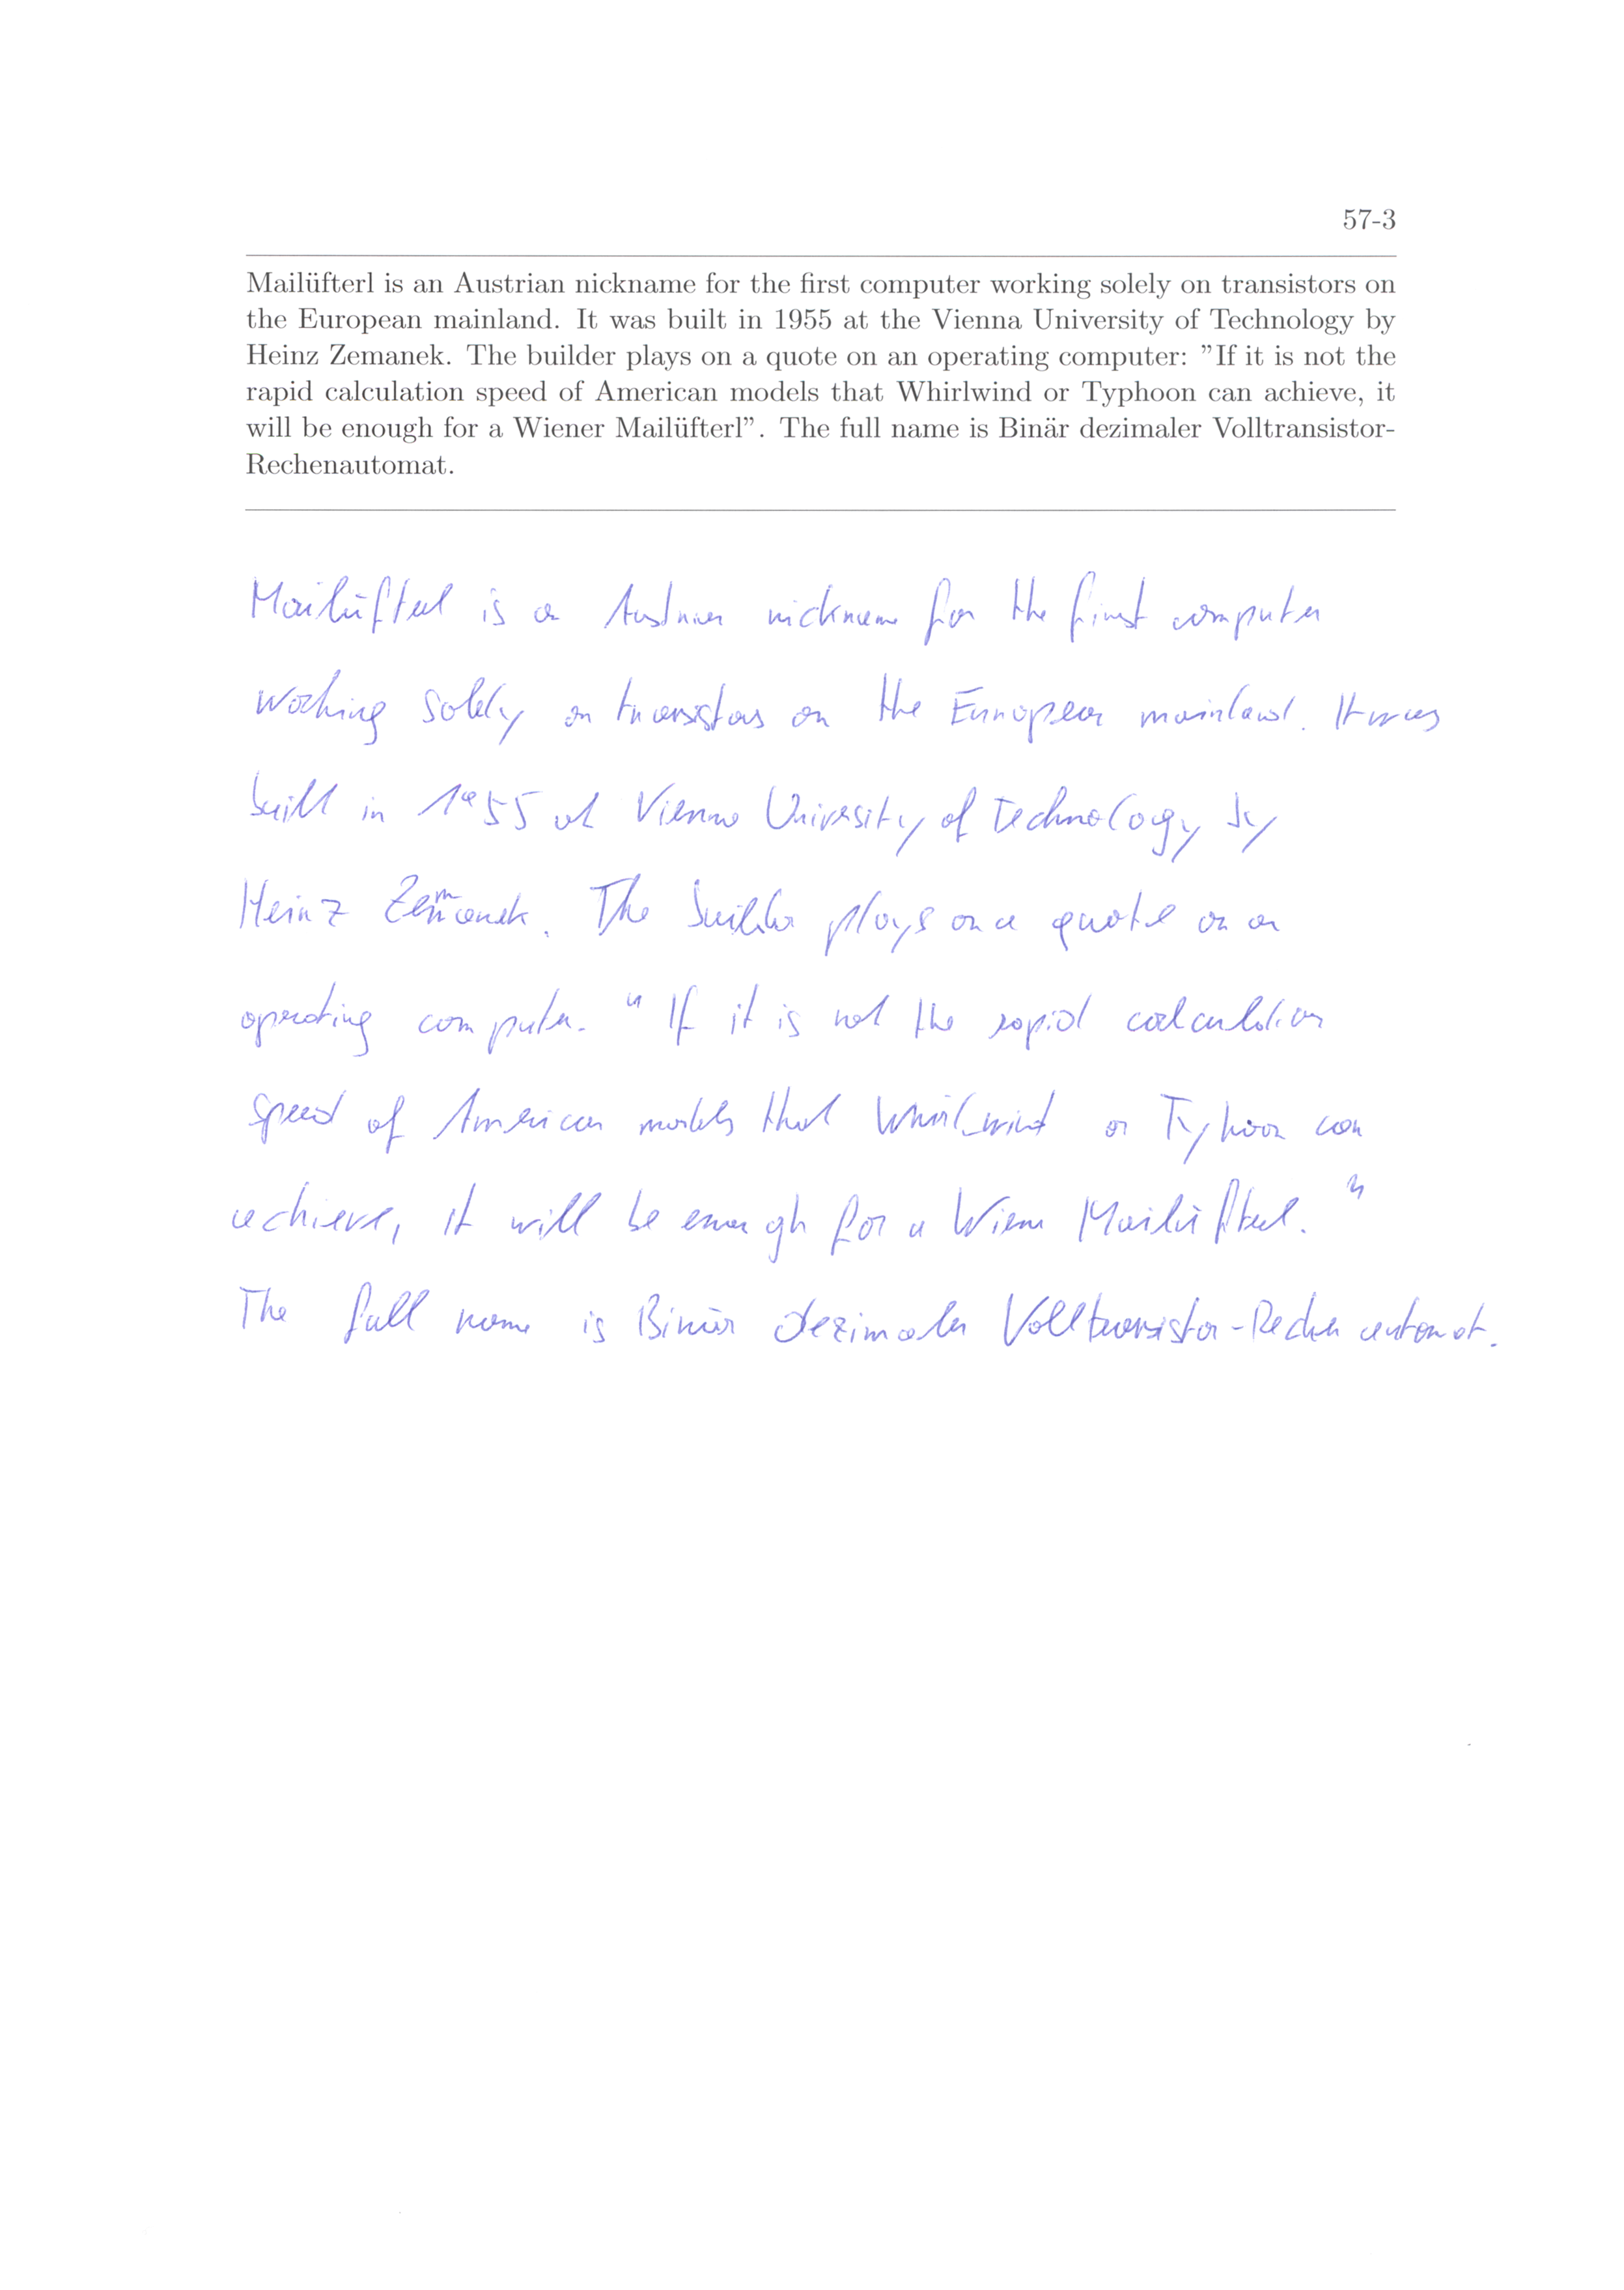 57-3
Mailüfterl is an Austrian nickname for the first computer working solely on transistors on
the European mainland. It was built in 1955 at the Vienna University of Technology by
Heinz Zemanek. The builder plays on a quote on an operating computer: ”If it is not the
rapid calculation speed of American models that Whirlwind or Typhoon can achieve, it
will be enough for a Wiener Mailüfterl”. The full name is Binär dezimaler Volltransistor-
Rechenautomat.
Mailüfterl is an Austrian nickname for the first computer
working solely on transistors on the European mainland. It was
built in 1955 at Vienna University of Technology by
Heinz Zemanek. The builder plays on a quote on an
operating computer. "If it is not the rapid calculation
speed of American models that Whirlwind or Tyhoon can
achieve, it will be enough for a Wiener Mailüfterl."
The full name is Binär dezimaler Volltransistor-Rechenautomat.